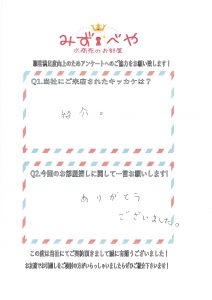 みず べや
水商売のお部屋
顧客満足度向上のためアンケートへのご協力をお願い致します!
Q1.当社にご来店されたキッカケは?
紹介。
Q2.今回のお部屋探しに関して一言お願いします!
ありがとう
ございました。
この度は当社にてご契約頂きまして誠に有難うございました!
お友達でお引越しをご検討の方がいらっしゃいましたらぜひご紹介下さいませ!